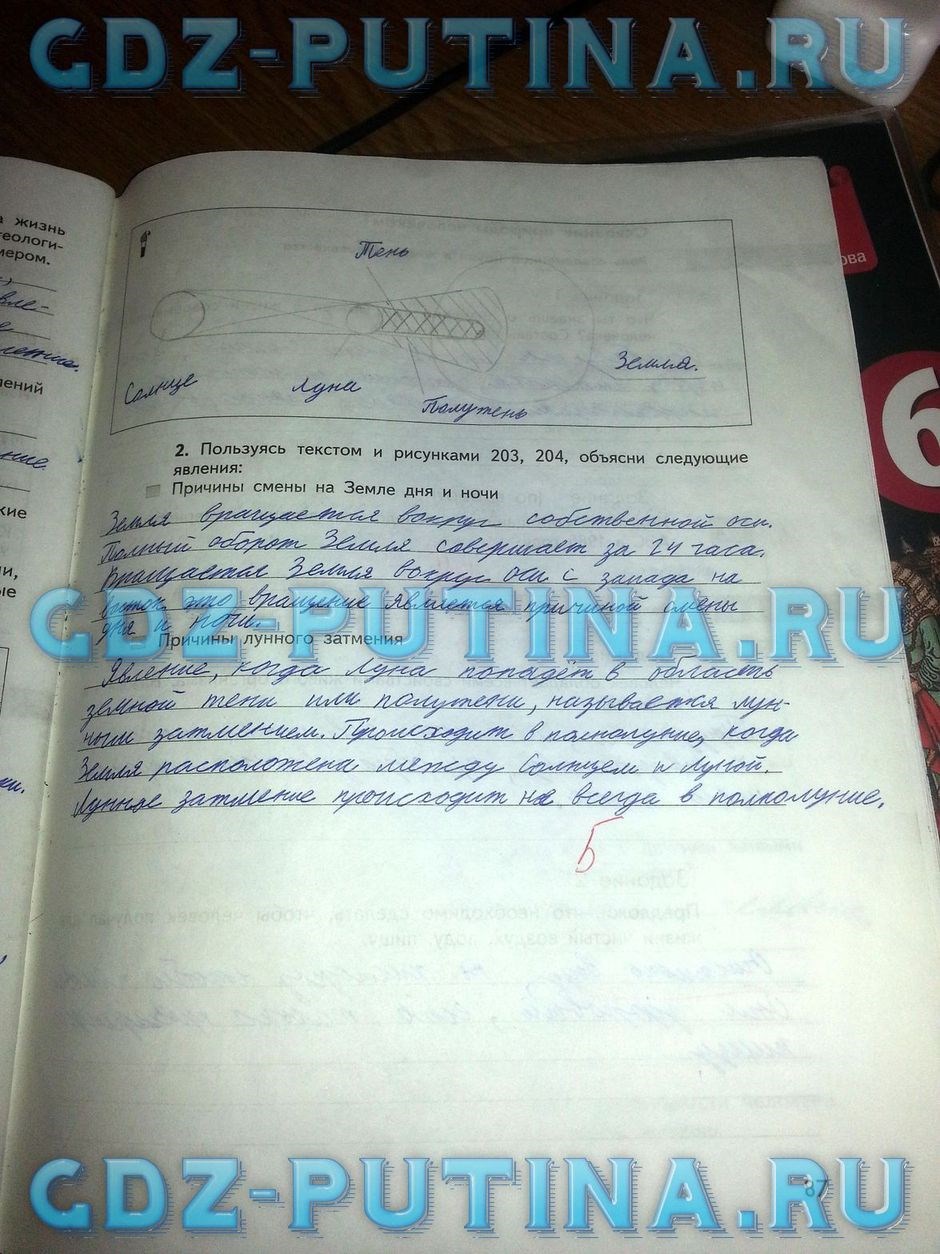 GDZ-PUTINA.RU
а жизнь
геологи-
мером.
Тень
ова
Солнце
Луна
Земля.
Полутень
6
2. Пользуясь текстом и рисунками 203, 204, объясни следующие
явления:
Причины смены на Земле дня и ночи
Земля вращается вокруг собственной оси.
Полный оборот Земля совершает за 24 часа.
Вращается Земля вокруг оси с запада на
восток, это вращение является причиной смены
дня и ночи.
GDZ-PUTINA.RU
Причины лунного затмения
Явление, когда Луна попадёт в область
земной тени или полутени, называется лун-
ным затмением. Происходит в полнолуние, когда
Земля расположена между Солнцем и Луной.
Лунное затмение происходит не всегда в полнолуние.
5
87
GDZ-PUTINA.RU